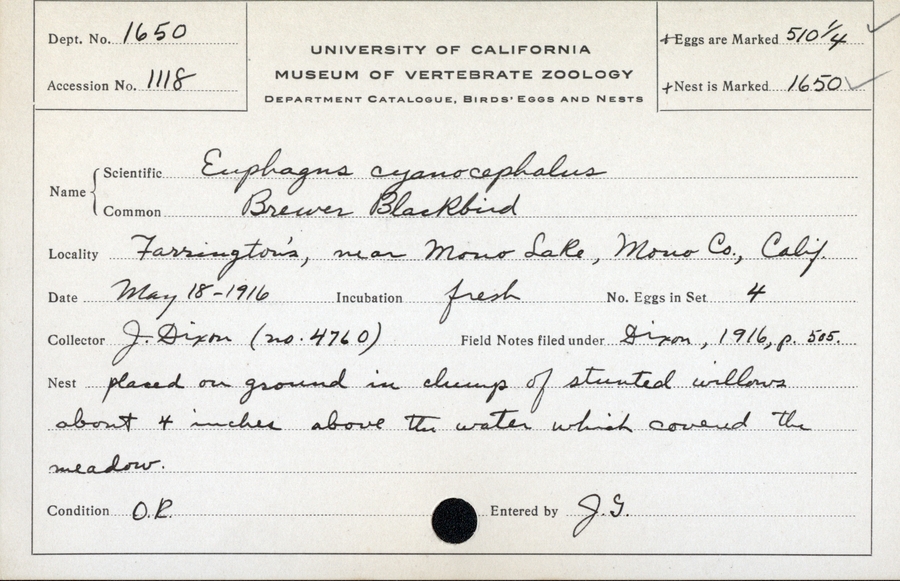 Dept. No. 1650
Accession No. 1118
UNIVERSITY OF CALIFORNIA
MUSEUM OF VERTEBRATE ZOOLOGY
DEPARTMENT CATALOGUE, BIRDS' EGGS AND NESTS
+Eggs are Marked 510 1/4
+Nest is Marked 1650
Name
Scientific Euphagus cyanocephalus
Common Brewer Blackbird
Locality Farrington's, near Mono Lake, Mono Co., Calif.
Date May 18-1916 Incubation fresh No. Eggs in Set 4
Collector J. Dixon (no. 4760) Field Notes filed under Dixon, 1916, p. 505.
Nest placed on ground in clump of stunted willows
about 4 inches above the water which covered the
meadow.
Condition O.K. Entered by J.G.